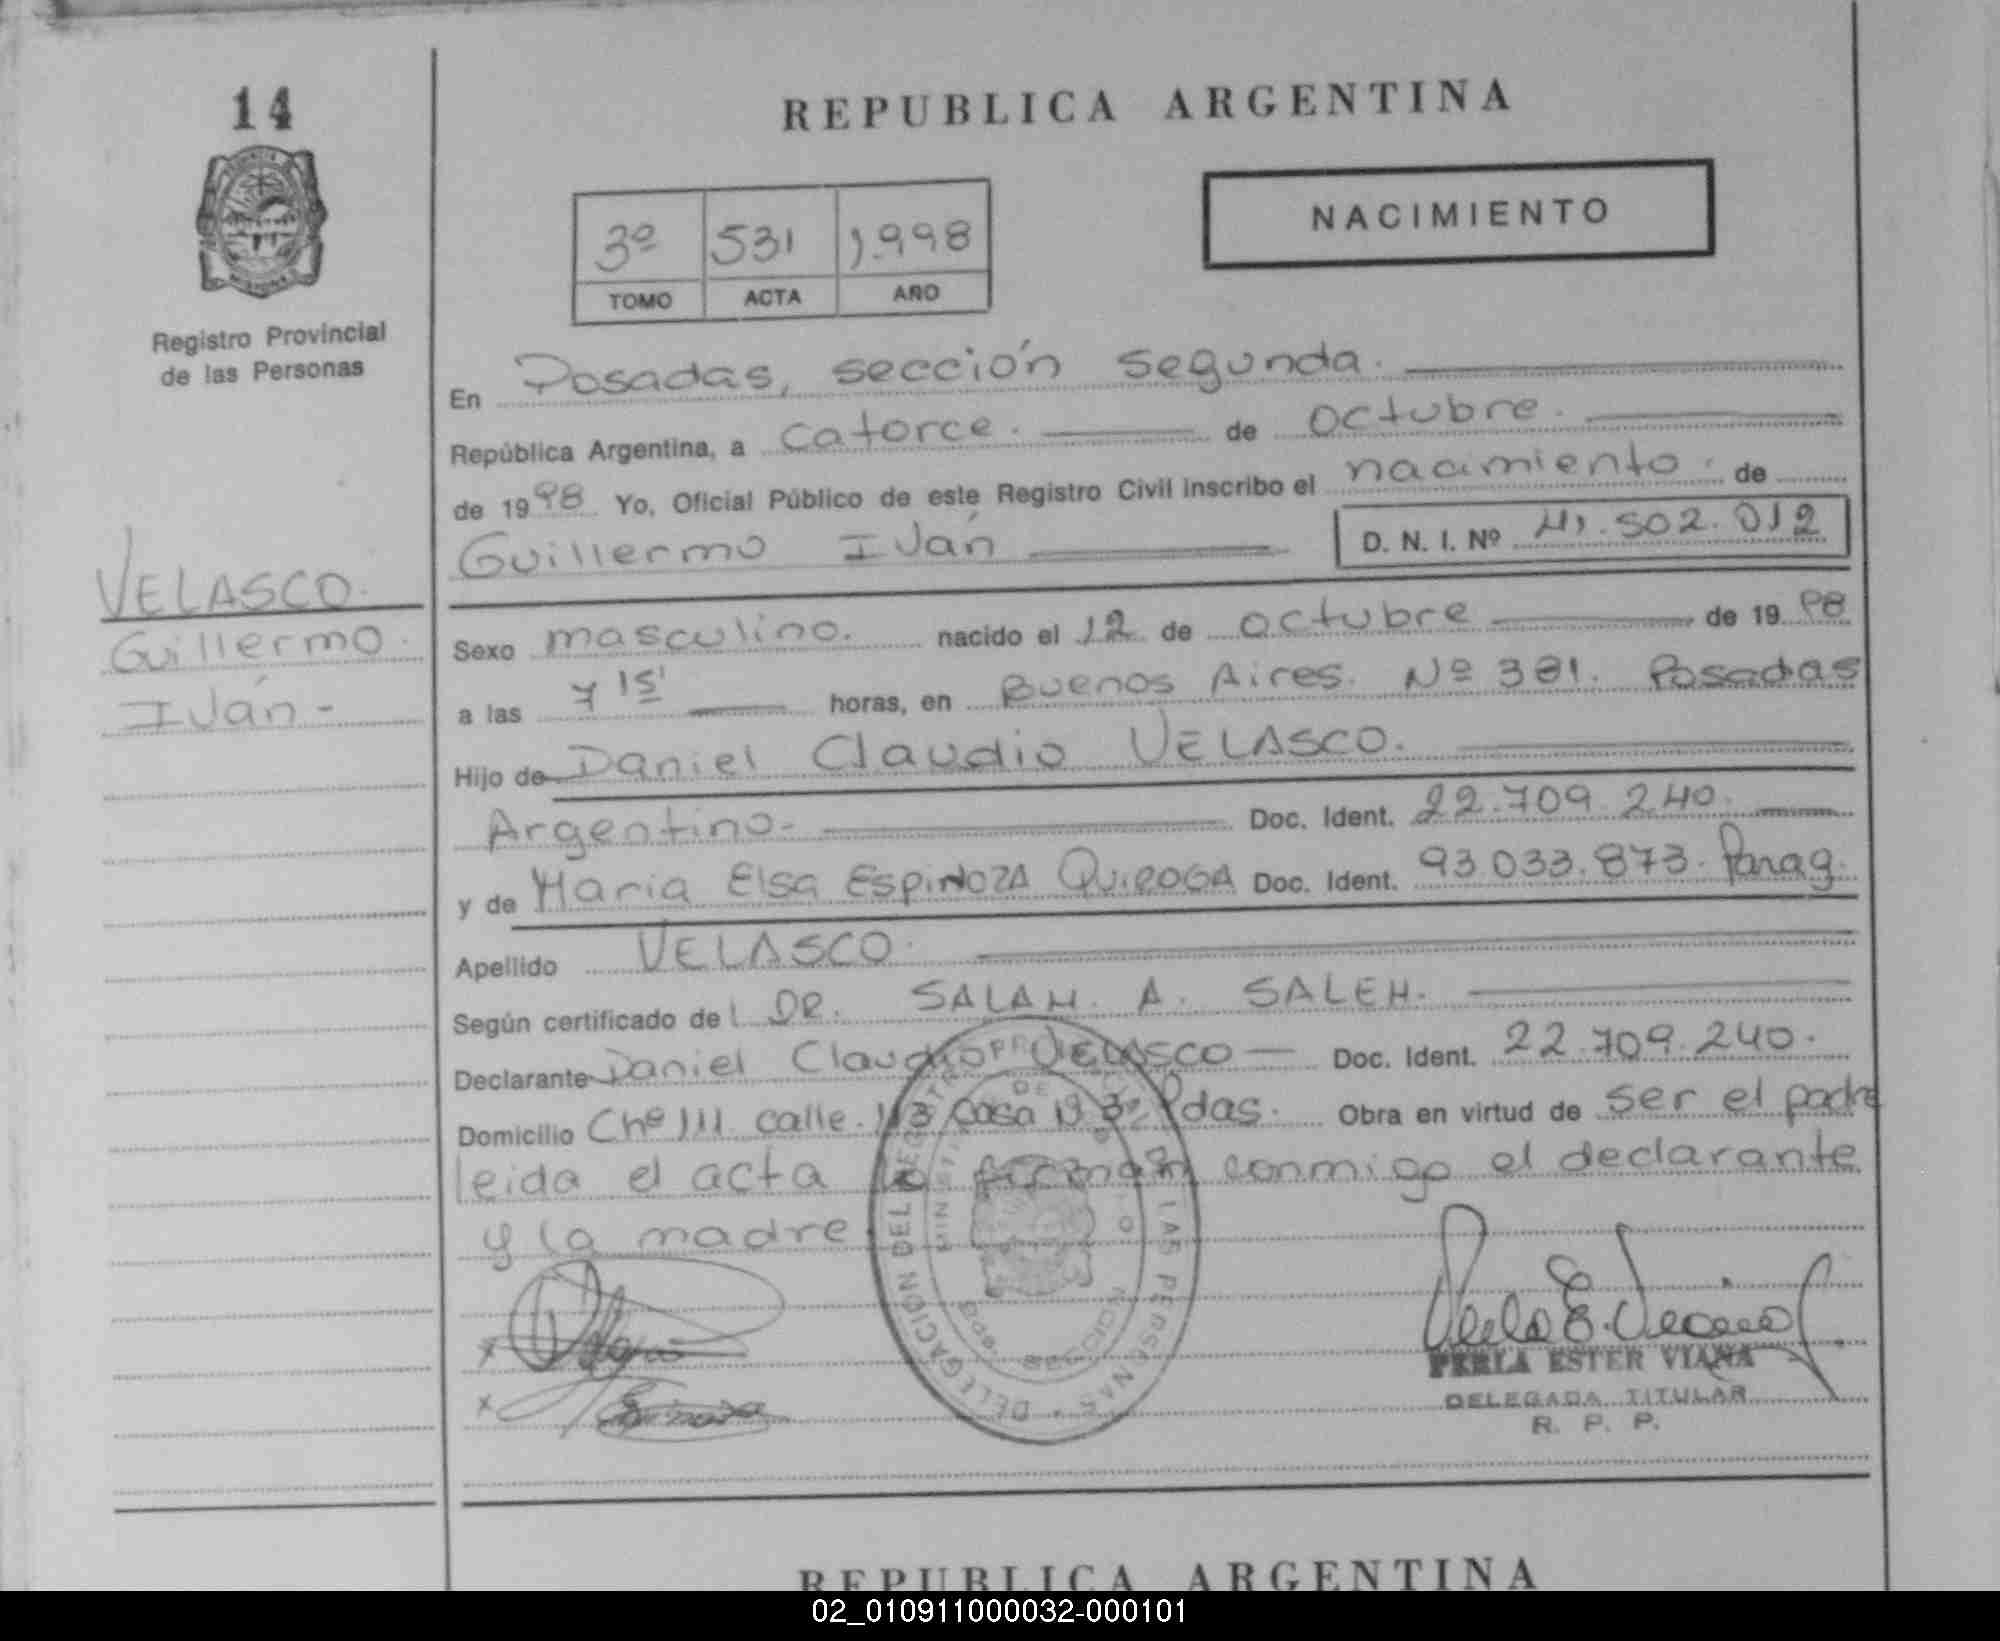 14
REPUBLICA ARGENTINA
NACIMIENTO
3º 531 1.998
TOMO ACTA AÑO
Registro Provincial
de las Personas
En Posadas, sección Segunda.
República Argentina, a catorce. de octubre.
de 1998 Yo, Oficial Público de este Registro Civil inscribo el nacimiento. de
Guillermo Iván D. N. I. Nº 41.502.012
VELASCO.
Guillermo.
Iván -
Sexo masculino. nacido el 12 de octubre de 1998
a las 7 15' horas, en Buenos Aires. Nº 381. Posadas
Hijo de Daniel Claudio VELASCO.
Argentino- Doc. Ident. 22.709.240.
y de Maria Elsa ESPINOZA QUIROGA Doc. Ident. 93.033.873. Parag.
Apellido VELASCO.
Según certificado del DR. SALAH. A. SALEH.
Declarante Daniel Claudio VELASCO — Doc. Ident. 22.709.240.
Domicilio Chª 111. calle. 113 casa Pdas. Obra en virtud de ser el padre
leida el acta la firman conmigo el declarante
y la madre
DELEGACION DEL REGISTRO DE LAS PERSONAS
PERLA ESTER VIANA
DELEGADA TITULAR
R. P. P.
REPUBLICA ARGENTINA
02_010911000032-000101